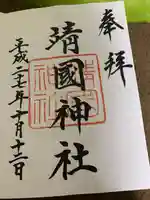 奉拝
靖國神社
平成二十七年十月十二日